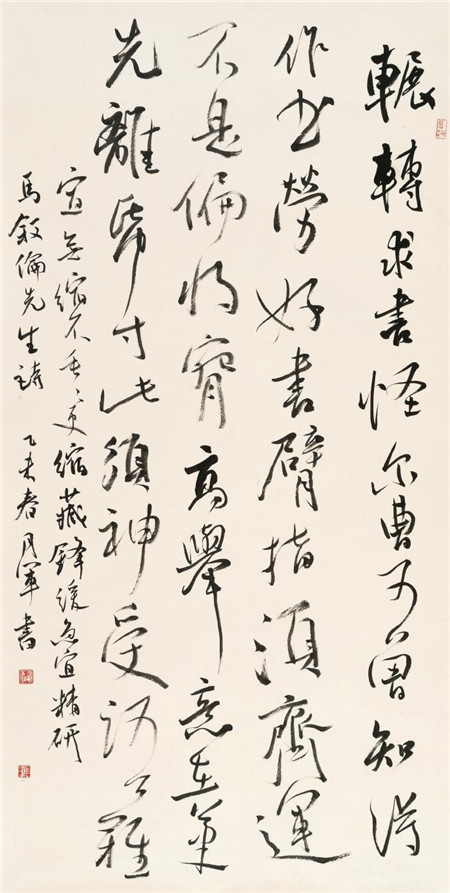 輾轉求書怪尔曹可曾知得
作書勞好書臂指須齊運
不是偏将高舉意在筆
先離紙寸此須神受難
無縮不垂〻更縮藏鋒緩急宜精研
馬敘倫先生詩 乙未春月軍書